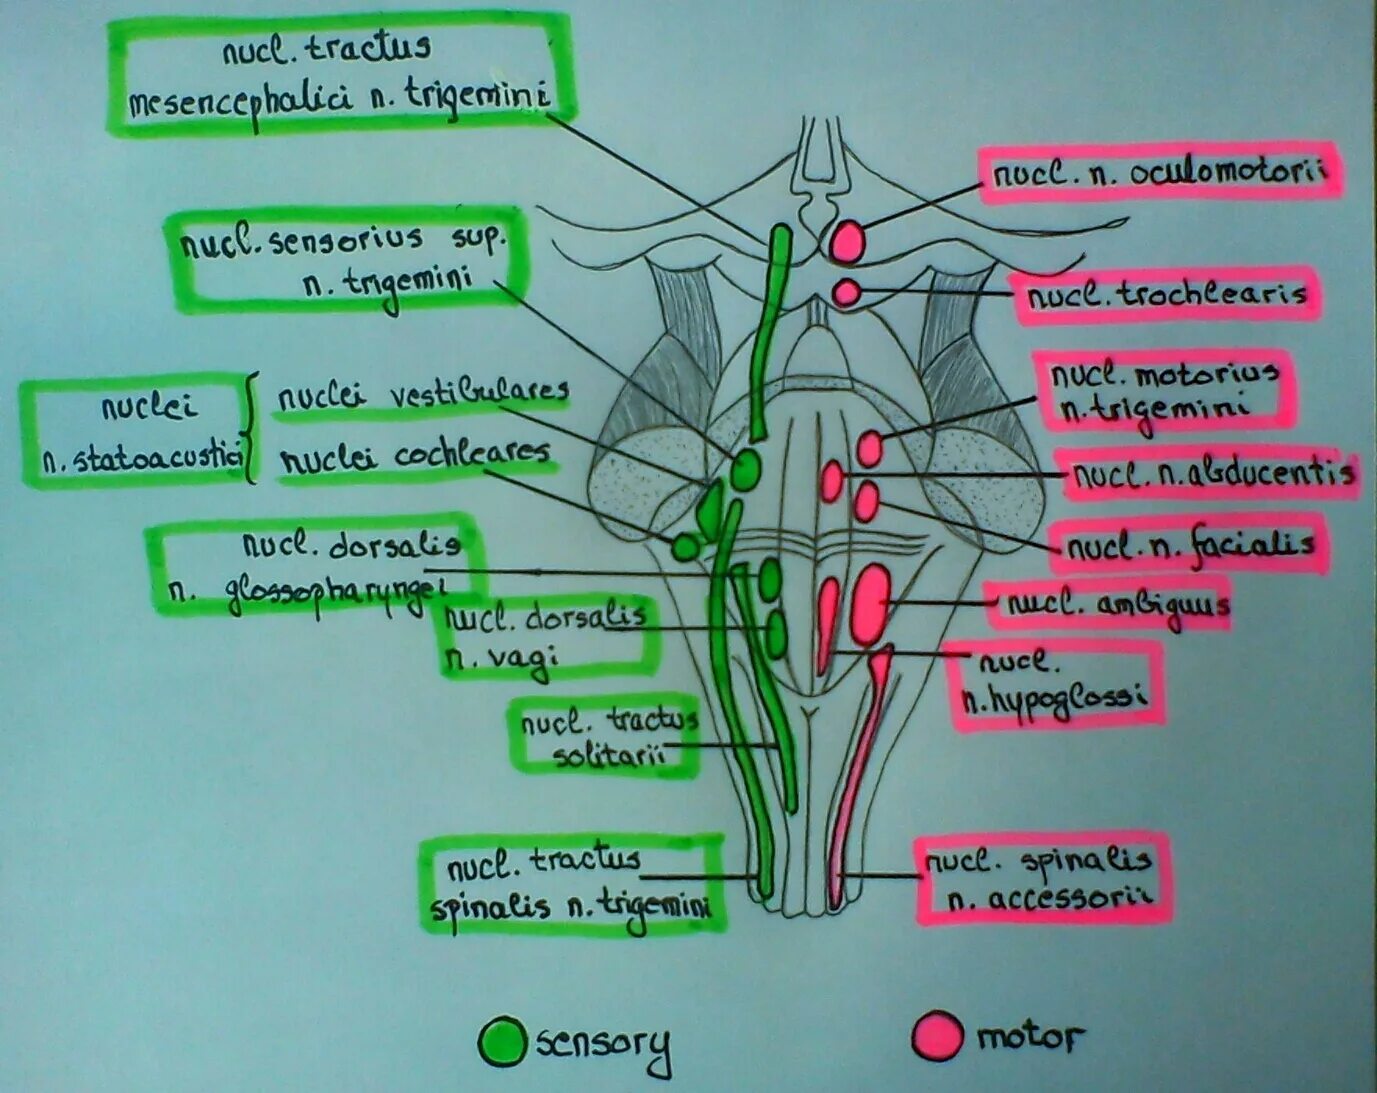 nucl. tractus
mesencephalici n. trigemini
nucl. sensorius sup.
n. trigemini
nuclei
n. statoacustici
nuclei vestibulares
nuclei cochleares
nucl. dorsalis
n. glossopharyngei
nucl. dorsalis
n. vagi
nucl. tractus
solitarii
nucl. tractus
spinalis n. trigemini
nucl. n. oculomotorii
nucl. trochlearis
nucl. motorius
n. trigemini
nucl. n. abducentis
nucl. n. facialis
nucl. ambiguus
nucl.
n. hypoglossi
nucl. spinalis
n. accessorii
sensory
motor